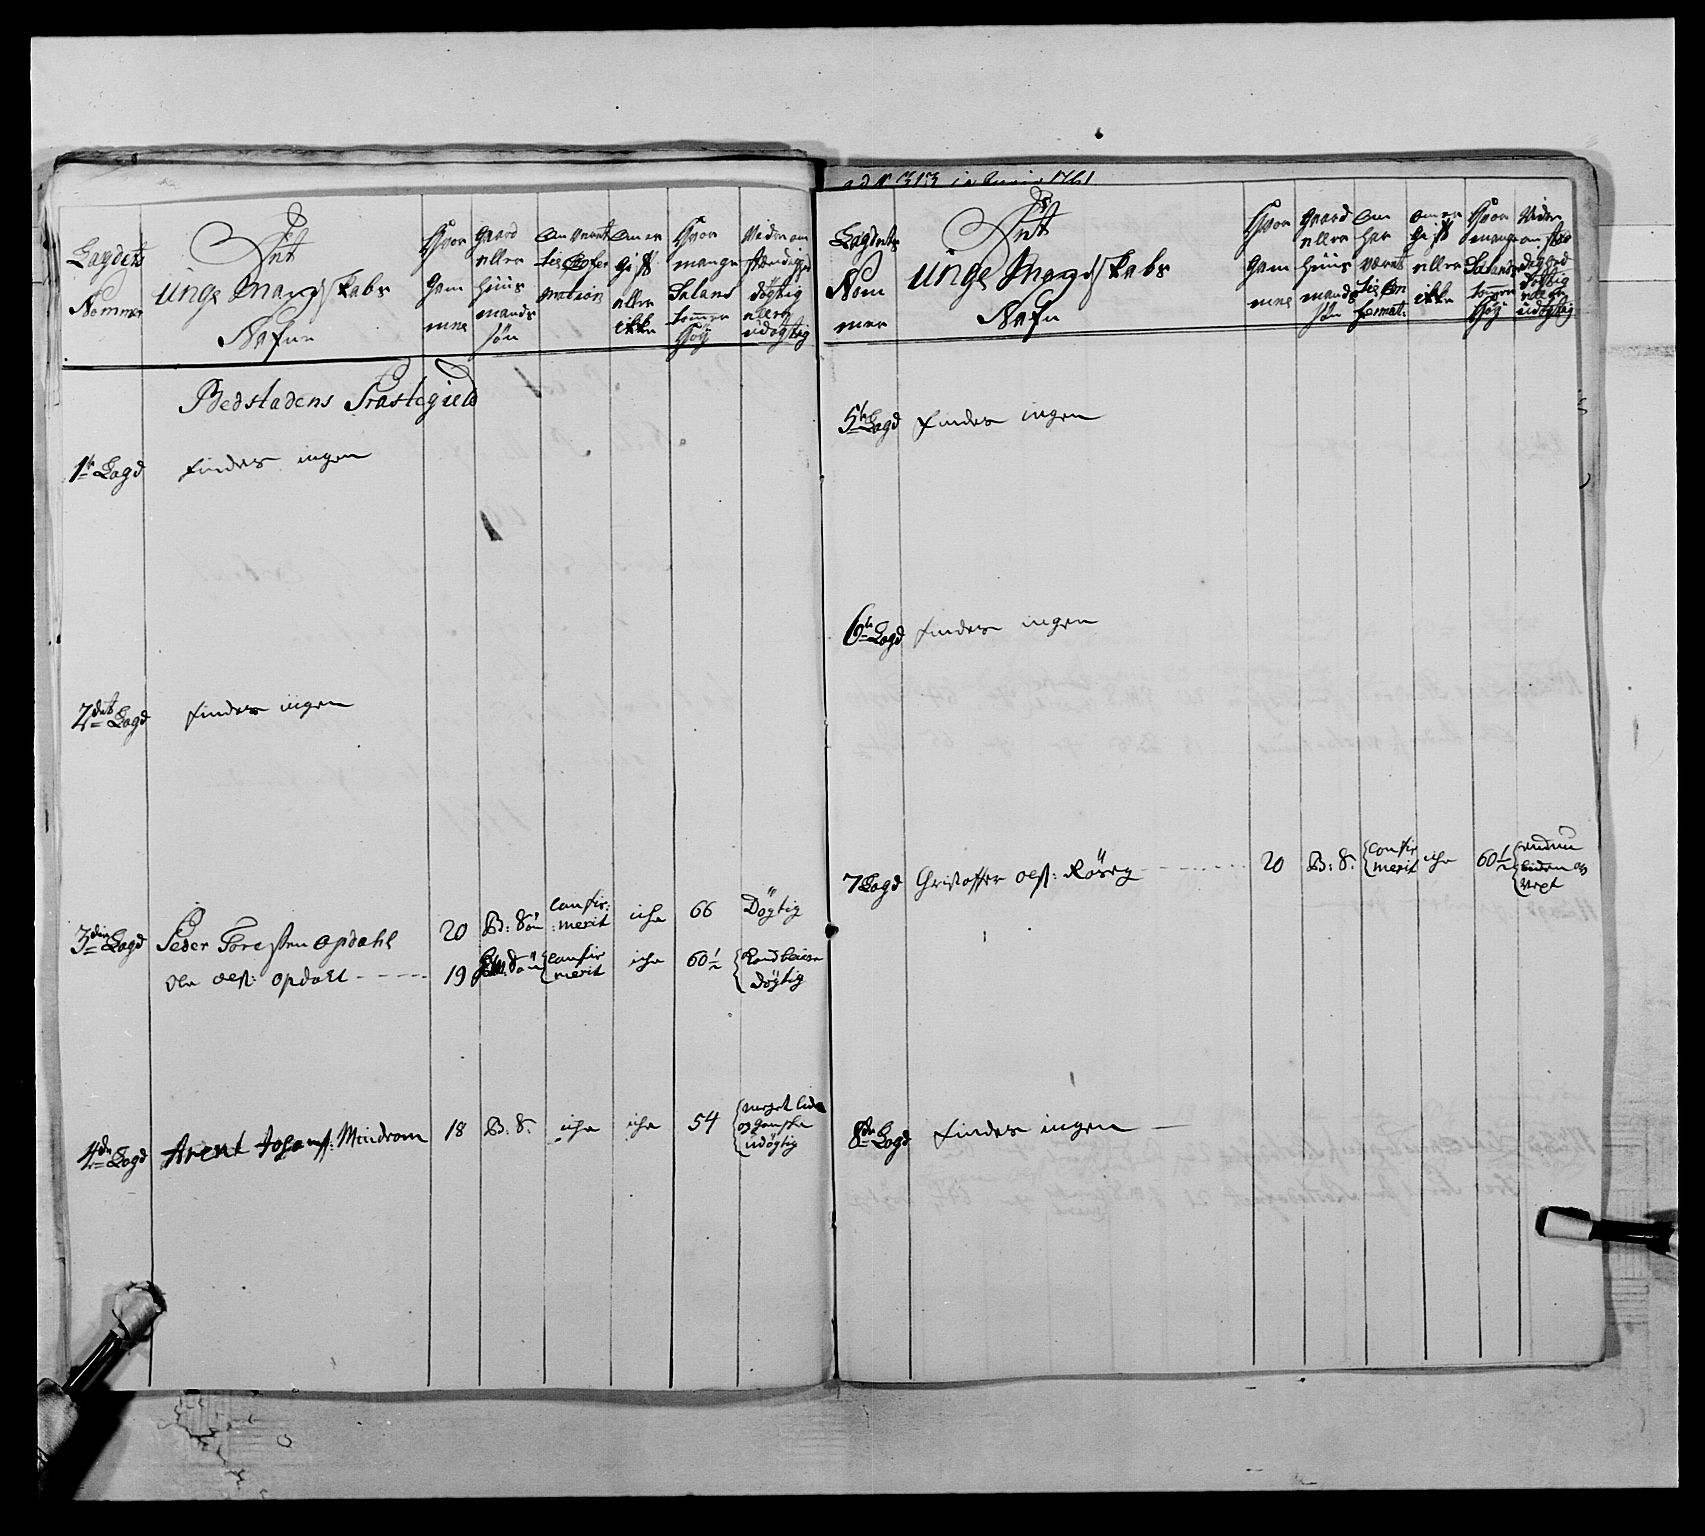 Lagdets
Nommer
Det
unge Mandskabs
Nafn
Hvor
gam
mel
Gaard
eller
Huus
mands
søn
Om været
til Confir
mation
Om er
gift
eller
ikke
Hvor
mange
Sælands
tommer
Høy
dögtig
eller
udögtig
Bedstadens Præstegield
1te Lagd findes ingen
2det Lagd findes ingen
3die Lagd Peder Toresen Opdahl 20 B: Søn Confir:merit icke 66 Dögtig
Ole Ols: Opdahl - - - - - 19 Søn Confirmerit icke 60½ Dögtig
4de Lagd Arent Johans: Mindrom 18 B: S. icke icke 54 meget liden og ganske udögtig
ad N 313 i Junio 1761
Lagdets
Nom
mer
Det
unge Mandskabs
Nafn
Hvor
gam
mel
Gaard
eller
Huus
mands
søn
Om
har
været
til Con
fermat:
Om er
gift
eller
ikke
Hvor
mange
Sælands
tommer
Høy
dögtig
eller
udögtig
5te Lagd findes ingen
6te Lagd findes ingen
7 Lagd Christoffer Ols: Röseg - - - - - 20 B: S. Confirmerit icke 60½ liden og
8de Lagd findes ingen —